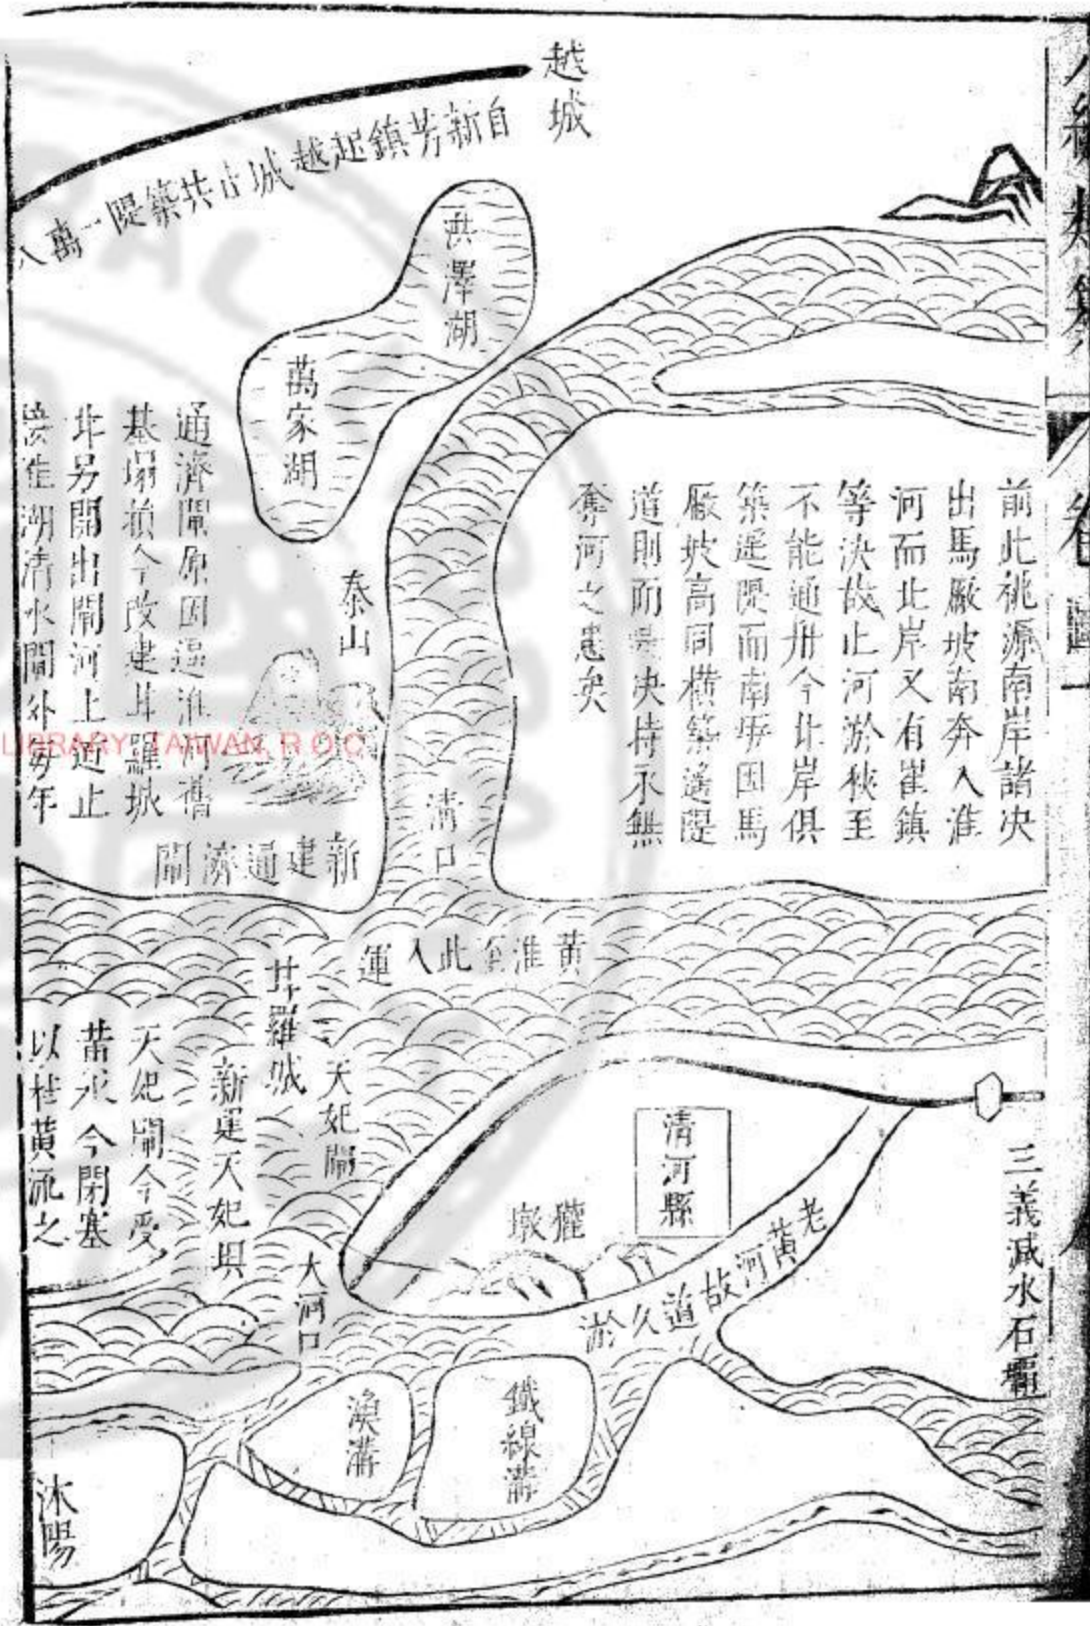 卷
圖一
越城
自新芳鎮起越城止共築隄一萬八
洪澤湖
萬家湖
前此桃源南岸諸決
出馬厰坡南奔入淮
河而北岸又有崔鎮
等決故止河淤狹至
不能通舟今北岸俱
築遥隄而南岸因馬
厰坡高岡橫築遙隄
道則兩岸決持永無
奪河之患矣
泰山
通濟閘原因逼淮河舊
基塌損今改建甘羅城
北另開出閘河上逈止
接淮湖清水閘外每年
新建通濟閘
清口
黃淮至此入運
甘羅城
天妃閘
新建天妃垻
天妃閘今受
黃水今閉塞
以杜黃流之
清河縣
墩
三義減水石壩
老黃河故道久淤
大河口
漁溝
鐵線溝
沐陽
LIBRARY, TAIWAN, R.O.C